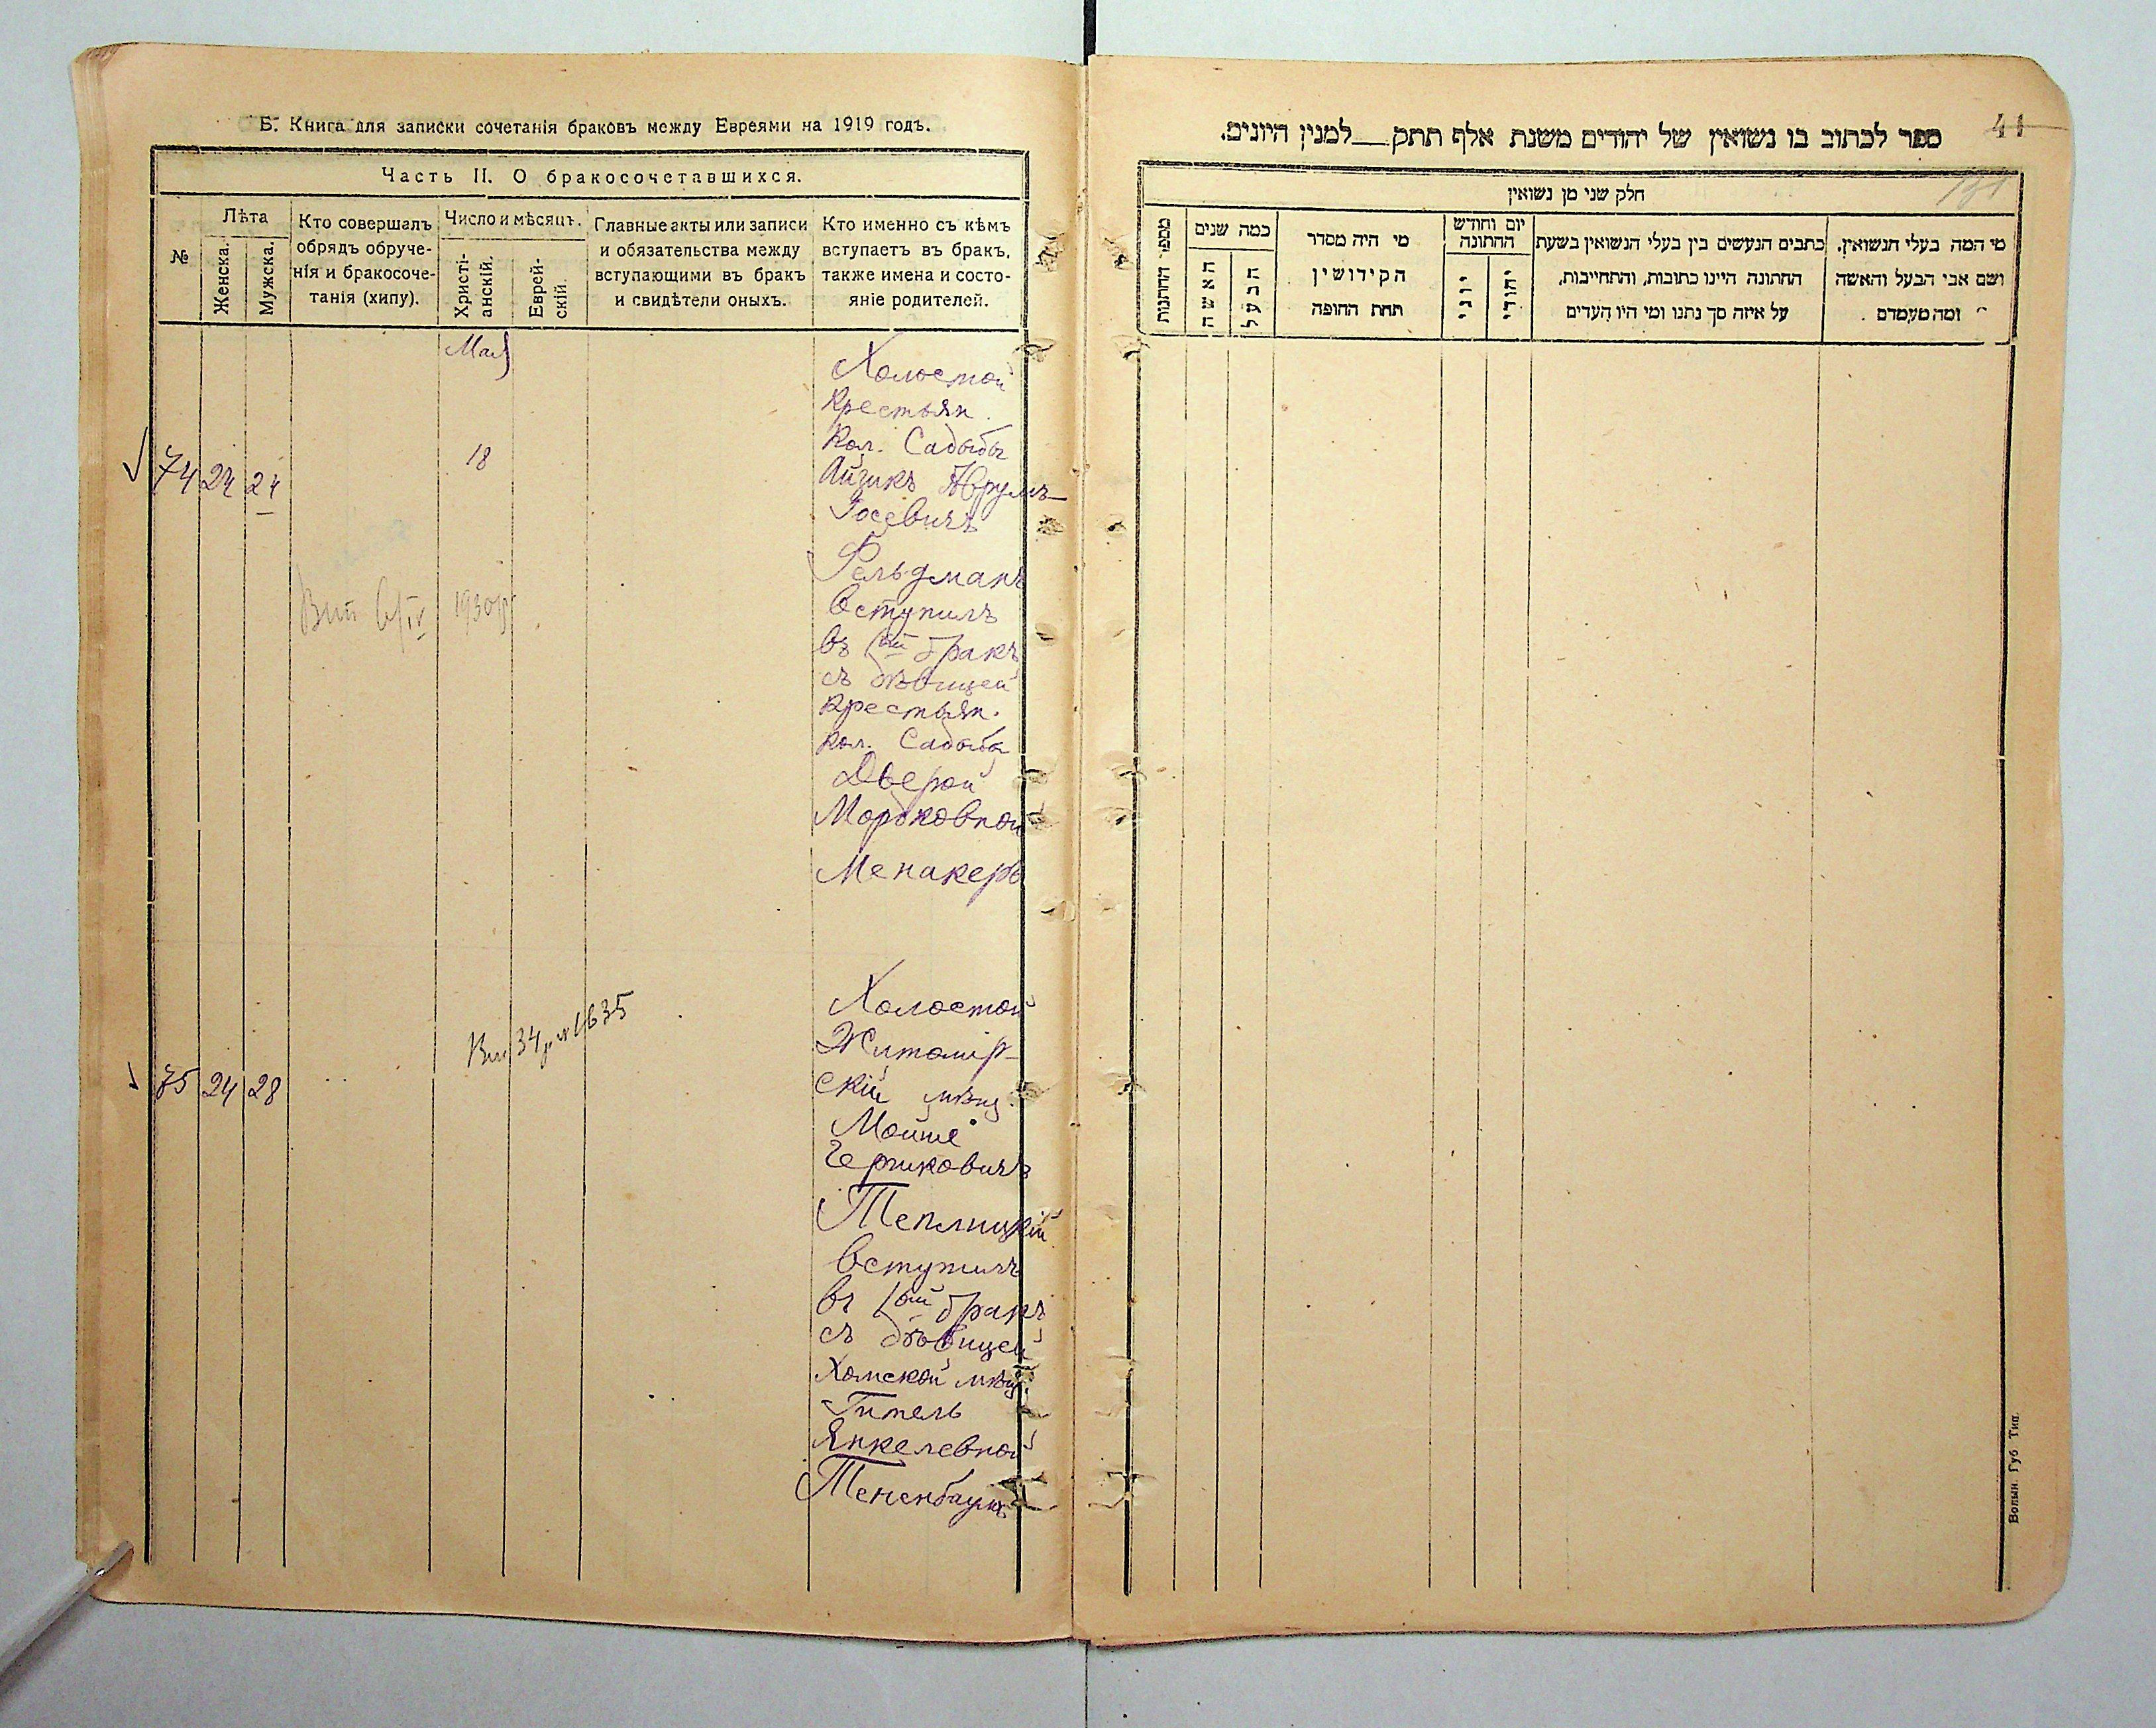 Б. Книга для записки сочетанія браковъ между Евреями на 1919 годъ.
Часть II. О бракосочетавшихся.
№
Лѣта
Женска.
Мужска.
Кто совершалъ
обрядъ обруче-
нія и бракосоче-
танія (хипу).
Число и мѣсяцъ.
Христі-
анскій.
Еврей-
скій.
Главные акты или записи
и обязательства между
вступающими въ бракъ
и свидѣтели оныхъ.
Кто именно съ кѣмъ
вступаетъ въ бракъ,
также имена и состо-
яніе родителей.
Мая
74 24 24
18
Холостой
крестьян.
Кол. Садыбы
Айзикъ Аврумъ-
Іосевичъ
Фельдманъ
вступилъ
въ 1ый бракъ
съ дѣвицей
крестьян.
кол. Садыба
Двейрой
Мордковной
Менакеръ
1930
75 24 28
34 р. № 1635
Холостой
Житомір-
скій мѣщ.
Мойше
Гершковичъ
Теплицкій
вступилъ
въ 1ый бракъ
съ дѣвицей
Хомской мѣщ.
Гитель
Янкелевной
Тененбаумъ
41
ספר לכתוב בו נשואין של יהודים משנת אלף תתק___למנין היונים.
חלק שני מן נשואין
מספר החתנות
כמה שנים
האשה
הבעל
מי היה מסדר
הקידושין
תחת החופה
יום וחודש
החתונה
יוני
יהודי
כתבים הנעשים בין בעלי הנשואין בשעת
החתונה היינו כתובות, והתחייבות,
על איזה סך נתנו ומי היו העדים
מי המה בעלי הנשואין,
ושם אבי הבעל והאשה
ומה מעמדם
Волын Губ Тип.